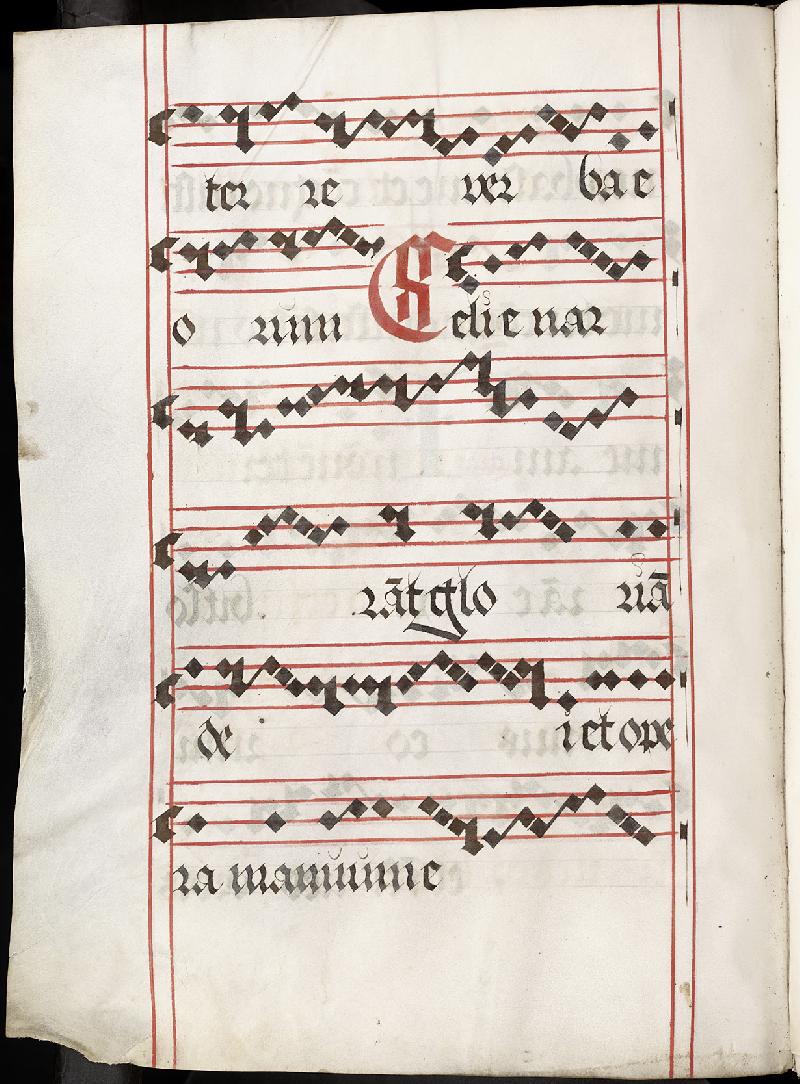 ter re ver ba e
o rum Celi e nar
rāt glo riā
de i et ope
ra manuum e